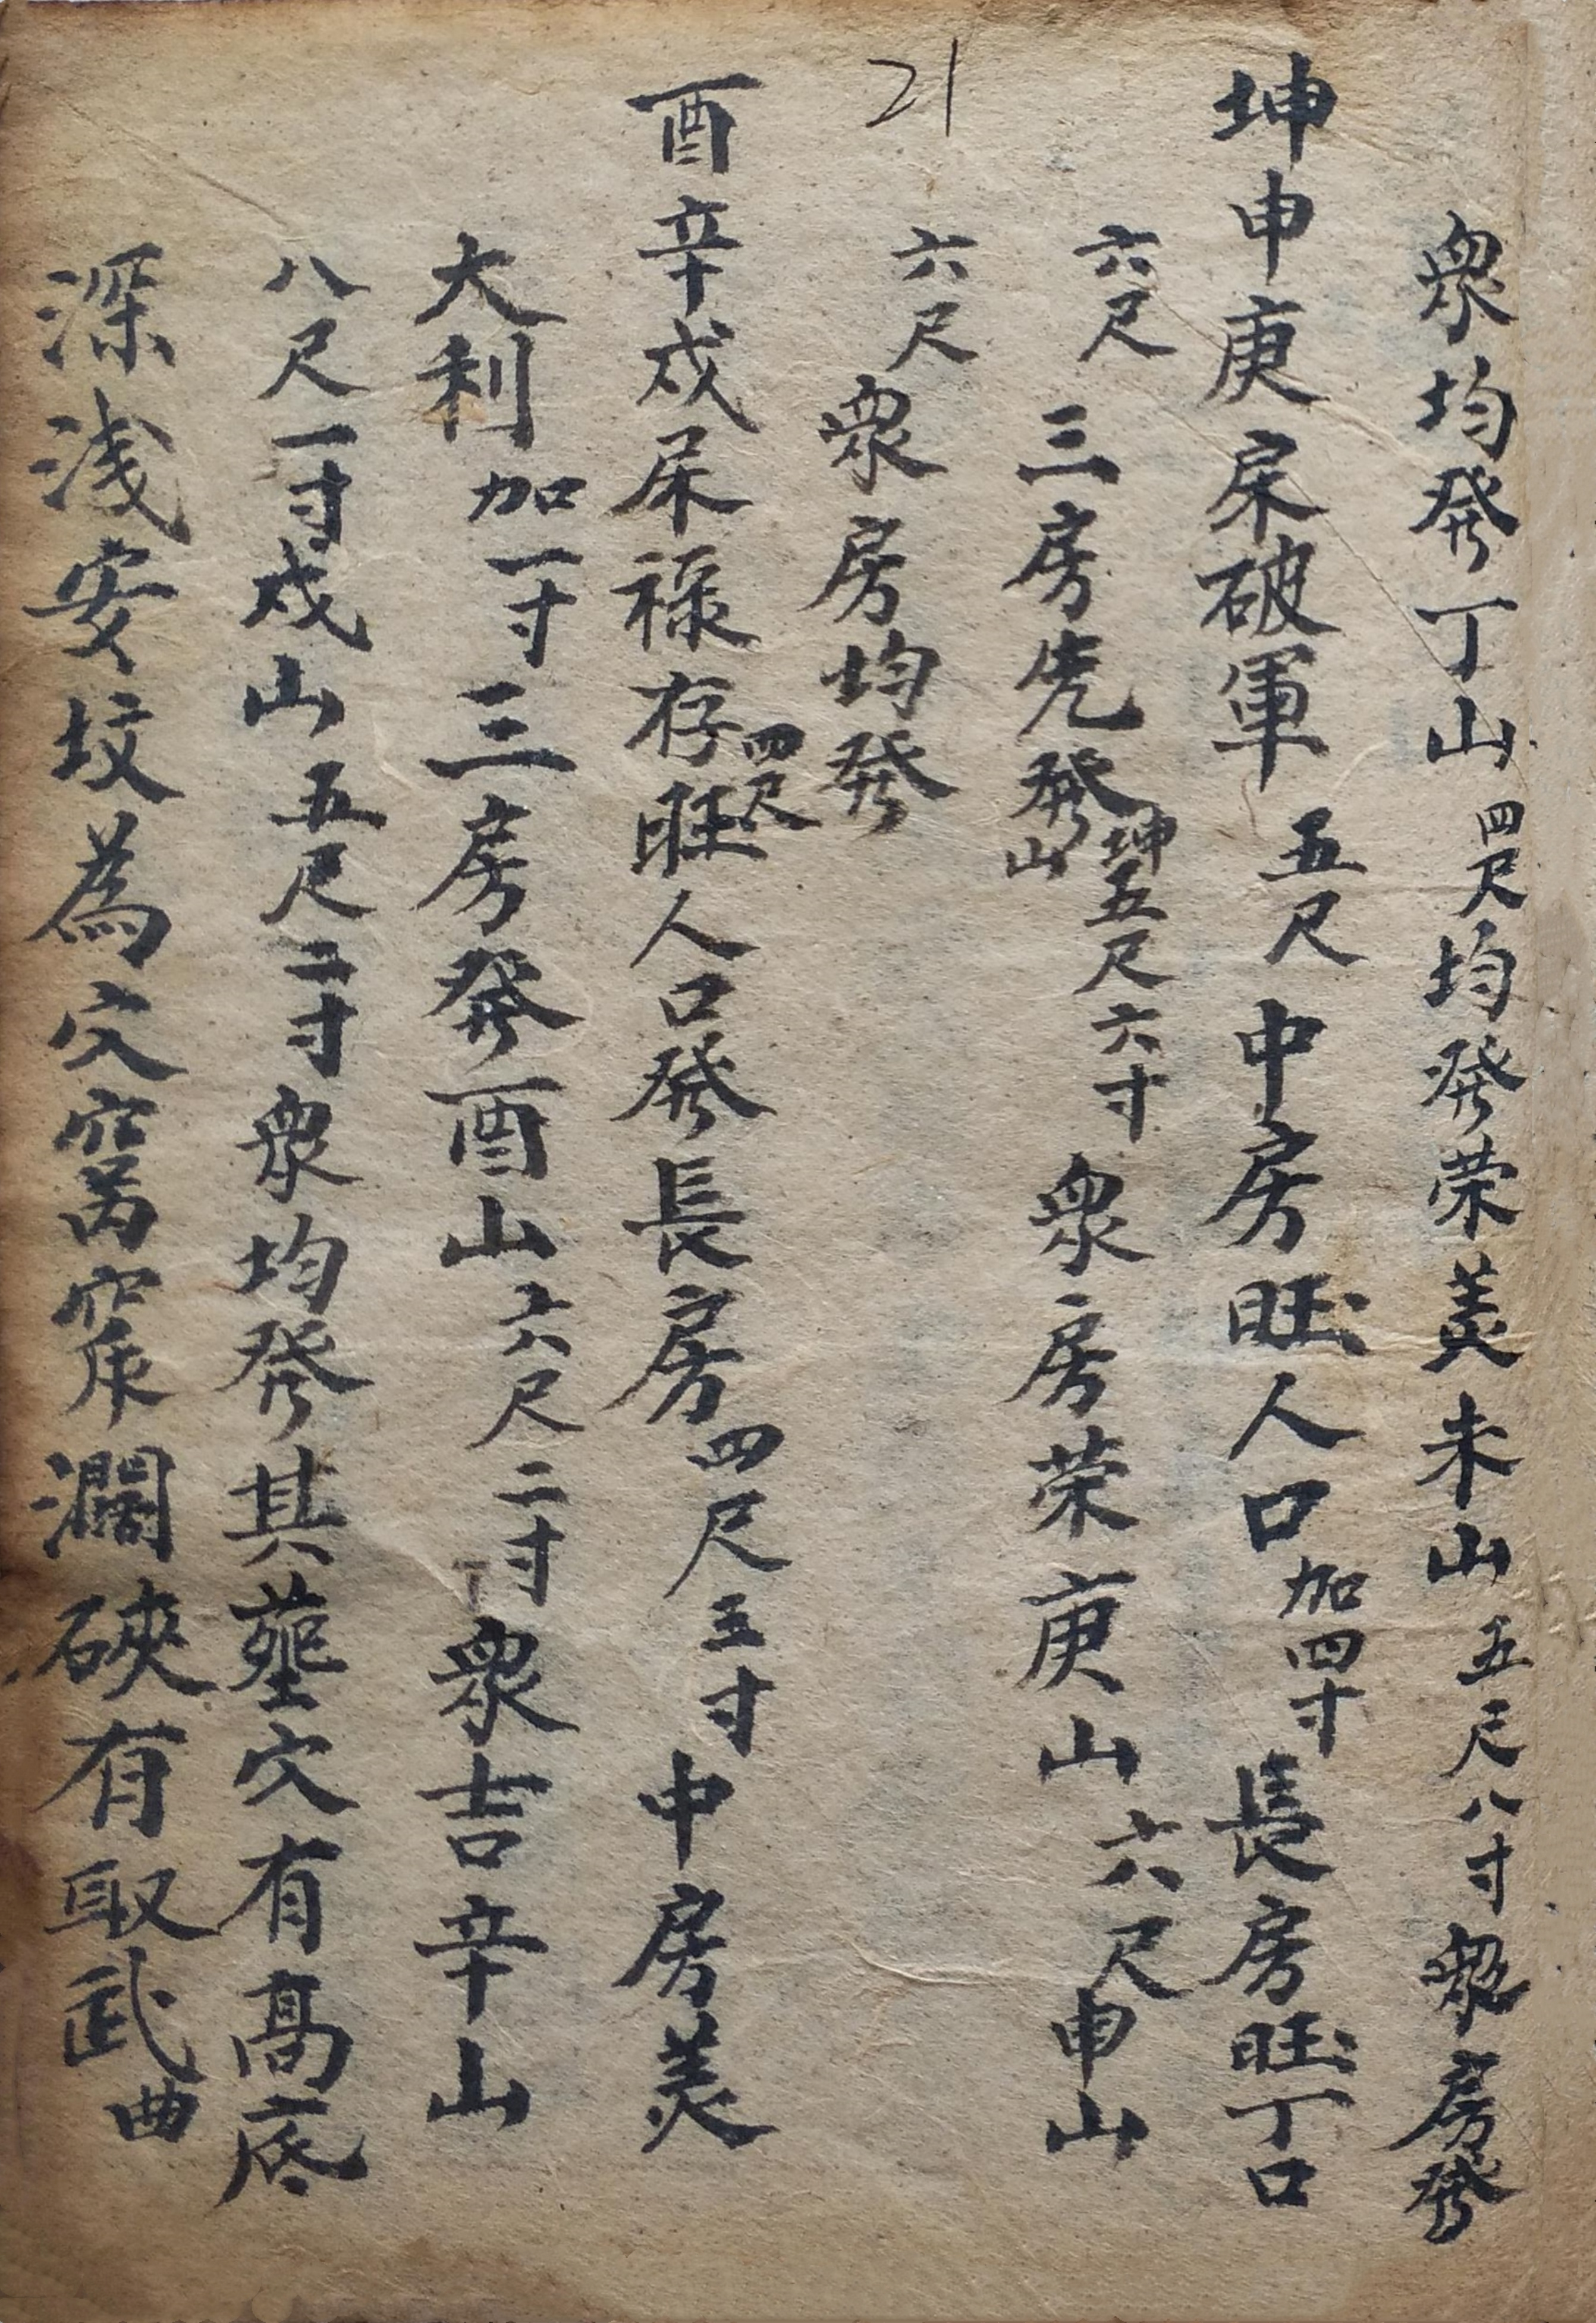 眾均發丁山四尺均發荣美未山五尺八寸眾房發
坤申庚屎破軍五尺中房旺人口加四寸長房旺丁口
六尺三房先發坤山五尺六寸眾房荣庚山六尺申山
六尺眾房均發
21
酉辛戌屎禄存四尺旺人口發長房四尺五寸中房美
大利加一寸三房發酉山六尺二寸眾吉辛山
八尺一寸戌山五尺二寸眾均發其塟穴有高底
深浅安坟為穴窩窄濶硤有取武曲